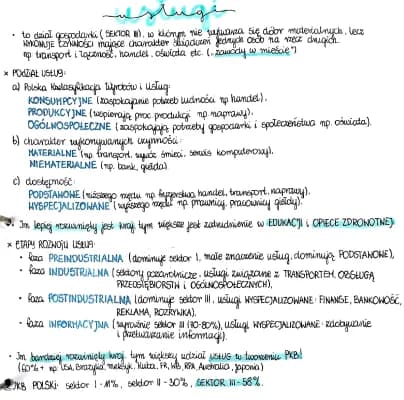 usługi
• to dział gospodarki (SEKTOR III), w którym nie wytwarza się dóbr materialnych, lecz
wykonuje czynności mające charakter świadczeń jednych osób na rzecz drugich.
np transport i łączność, handel, oświata etc. („zawody w mieście")
× PODZIAŁ USŁUG:
a) Polska Klasyfikacja Wyrobów i Usług:
KONSUMPCYJNE (zaspokajanie potrzeb ludności np handel),
PRODUKCYJNE (wspierają proc produkcji np naprawy),
OGÓLNOSPOŁECZNE (zaspokajają potrzeby gospodarki i społeczeństwa np oświata).
b) charakter wykonywanych czynności:
MATERIALNE (np transport, wywóz śmieci, serwis komputerowy),
NIEMATERIALNE (np bank, giełda).
c) dostępność:
PODSTAWOWE (niższego rzędu np fryzjerstwo, handel, transport, naprawy),
WYSPECJALIZOWANE (wyższego rzędu np prawnicy, pracownicy giełdy).
Im lepiej rozwinięty jest kraj tym większe jest zatrudnienie w EDUKACJI i OPIECE ZDROWOTNEJ
× ETAPY ROZWOJU USŁUG:
• faza PREINDUSTRIALNA (dominuje sektor I, małe znaczenie usług, dominują PODSTAWOWE),
• faza INDUSTRIALNA (sektory pozarolnicze, usługi związane z TRANSPORTEM, OBSŁUGĄ
PRZEDSIĘBIORSTW i OGÓLNOSPOŁECZNYCH),
• faza POSTINDUSTRIALNA (dominuje sektor III, usługi WYSPECJALIZOWANE: FINANSE, BANKOWOŚĆ,
REKLAMA, ROZRYWKA),
• faza INFORMACYJNA (wyrównie sektor III (70-80%), usługi WYSPECJALIZOWANE: zdobywanie
i przetwarzanie informacji).
• Im bardziej rozwinięty kraj, tym większy udział USŁUG w tworzeniu PKB!
(60%+ np. USA, Brazylia, Meksyk, Kuba, FR, WB, RPA, Australia, Japonia)
PKB POLSKI: sektor I - 11%, sektor II - 30%, SEKTOR III - 58%.